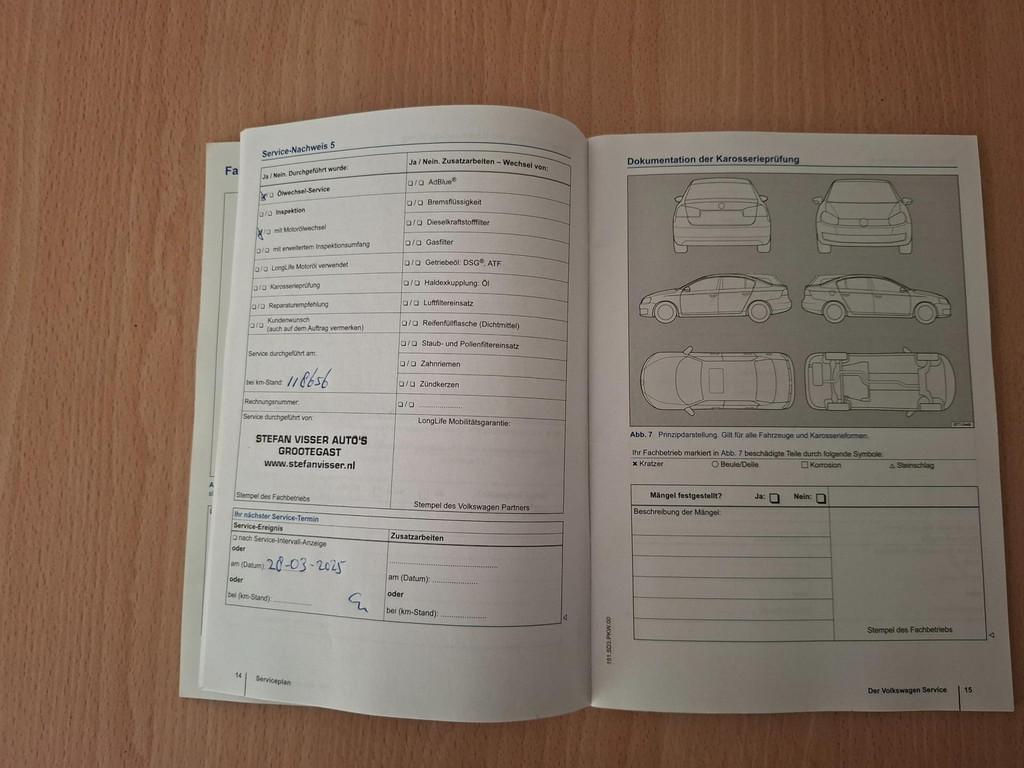 Fa
Service-Nachweis 5
Ja / Nein. Durchgeführt wurde:
Ölwechsel-Service
Inspektion
mit Motorölwechsel
mit erweitertem Inspektionsumfang
LongLife Motoröl verwendet
Karosserieprüfung
Reparaturempfehlung
Kundenwunsch
(auch auf dem Auftrag vermerken)
Service durchgeführt am:
bei km-Stand: 118656
Rechnungsnummer:
Service durchgeführt von:
STEFAN VISSER AUTO'S
GROOTEGAST
www.stefanvisser.nl
Stempel des Fachbetriebs
Ja / Nein. Zusatzarbeiten – Wechsel von:
AdBlue®
Bremsflüssigkeit
Dieselkraftstofffilter
Gasfilter
Getriebeöl: DSG®, ATF
Haldexkupplung: Öl
Luftfiltereinsatz
Reifenfüllflasche (Dichtmittel)
Staub- und Pollenfiltereinsatz
Zahnriemen
Zündkerzen
LongLife Mobilitätsgarantie:
Stempel des Volkswagen Partners
Ihr nächster Service-Termin
Service-Ereignis
nach Service-Intervall-Anzeige
oder
am (Datum): 28-03-2025
oder
bei (km-Stand): ............
Zusatzarbeiten
am (Datum): ..............
oder
bei (km-Stand): ..............
14 Serviceplan
Dokumentation der Karosserieprüfung
Abb. 7 Prinzipdarstellung. Gilt für alle Fahrzeuge und Karosserieformen.
Ihr Fachbetrieb markiert in Abb. 7 beschädigte Teile durch folgende Symbole:
Kratzer Beule/Delle Korrosion Steinschlag
Mängel festgestellt? Ja: Nein:
Beschreibung der Mängel:
Stempel des Fachbetriebs
Der Volkswagen Service 15